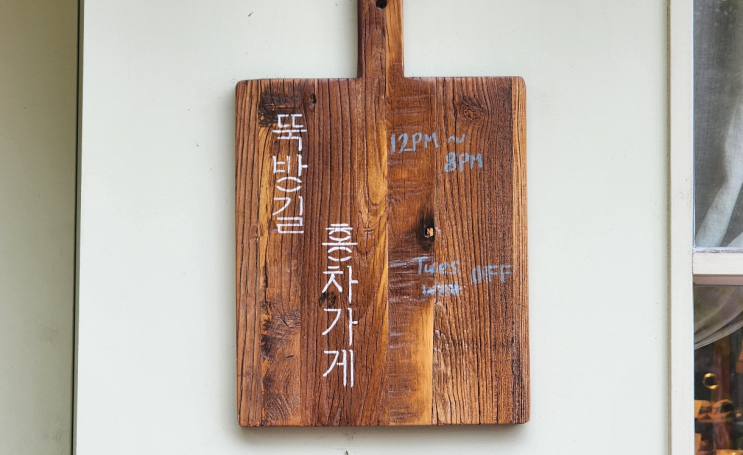 뚝방길
홍차가게
12PM ~
8PM
Tues OFF